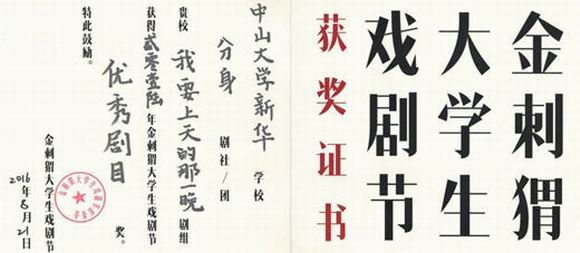 金刺猬
大学生
戏剧节
获奖证书
中山大学新华 学校
分身 剧社/团
贵校 我要上天的那一晚 剧组
获得贰零壹陆年金刺猬大学生戏剧节
优秀剧目 奖。
特此鼓励。
金刺猬大学生戏剧节
2016年8月21日